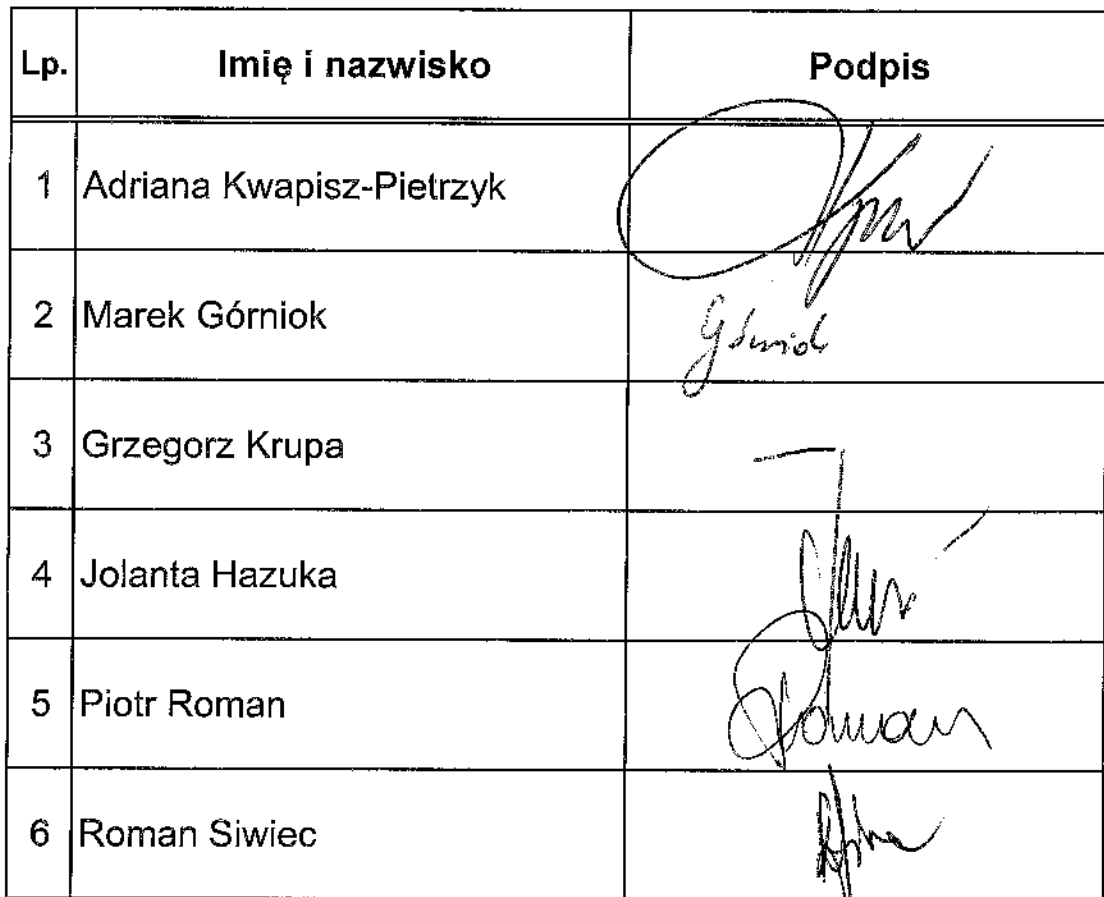 Lp. Imię i nazwisko Podpis
1 Adriana Kwapisz-Pietrzyk
2 Marek Górniok
3 Grzegorz Krupa
4 Jolanta Hazuka
5 Piotr Roman Roman
6 Roman Siwiec